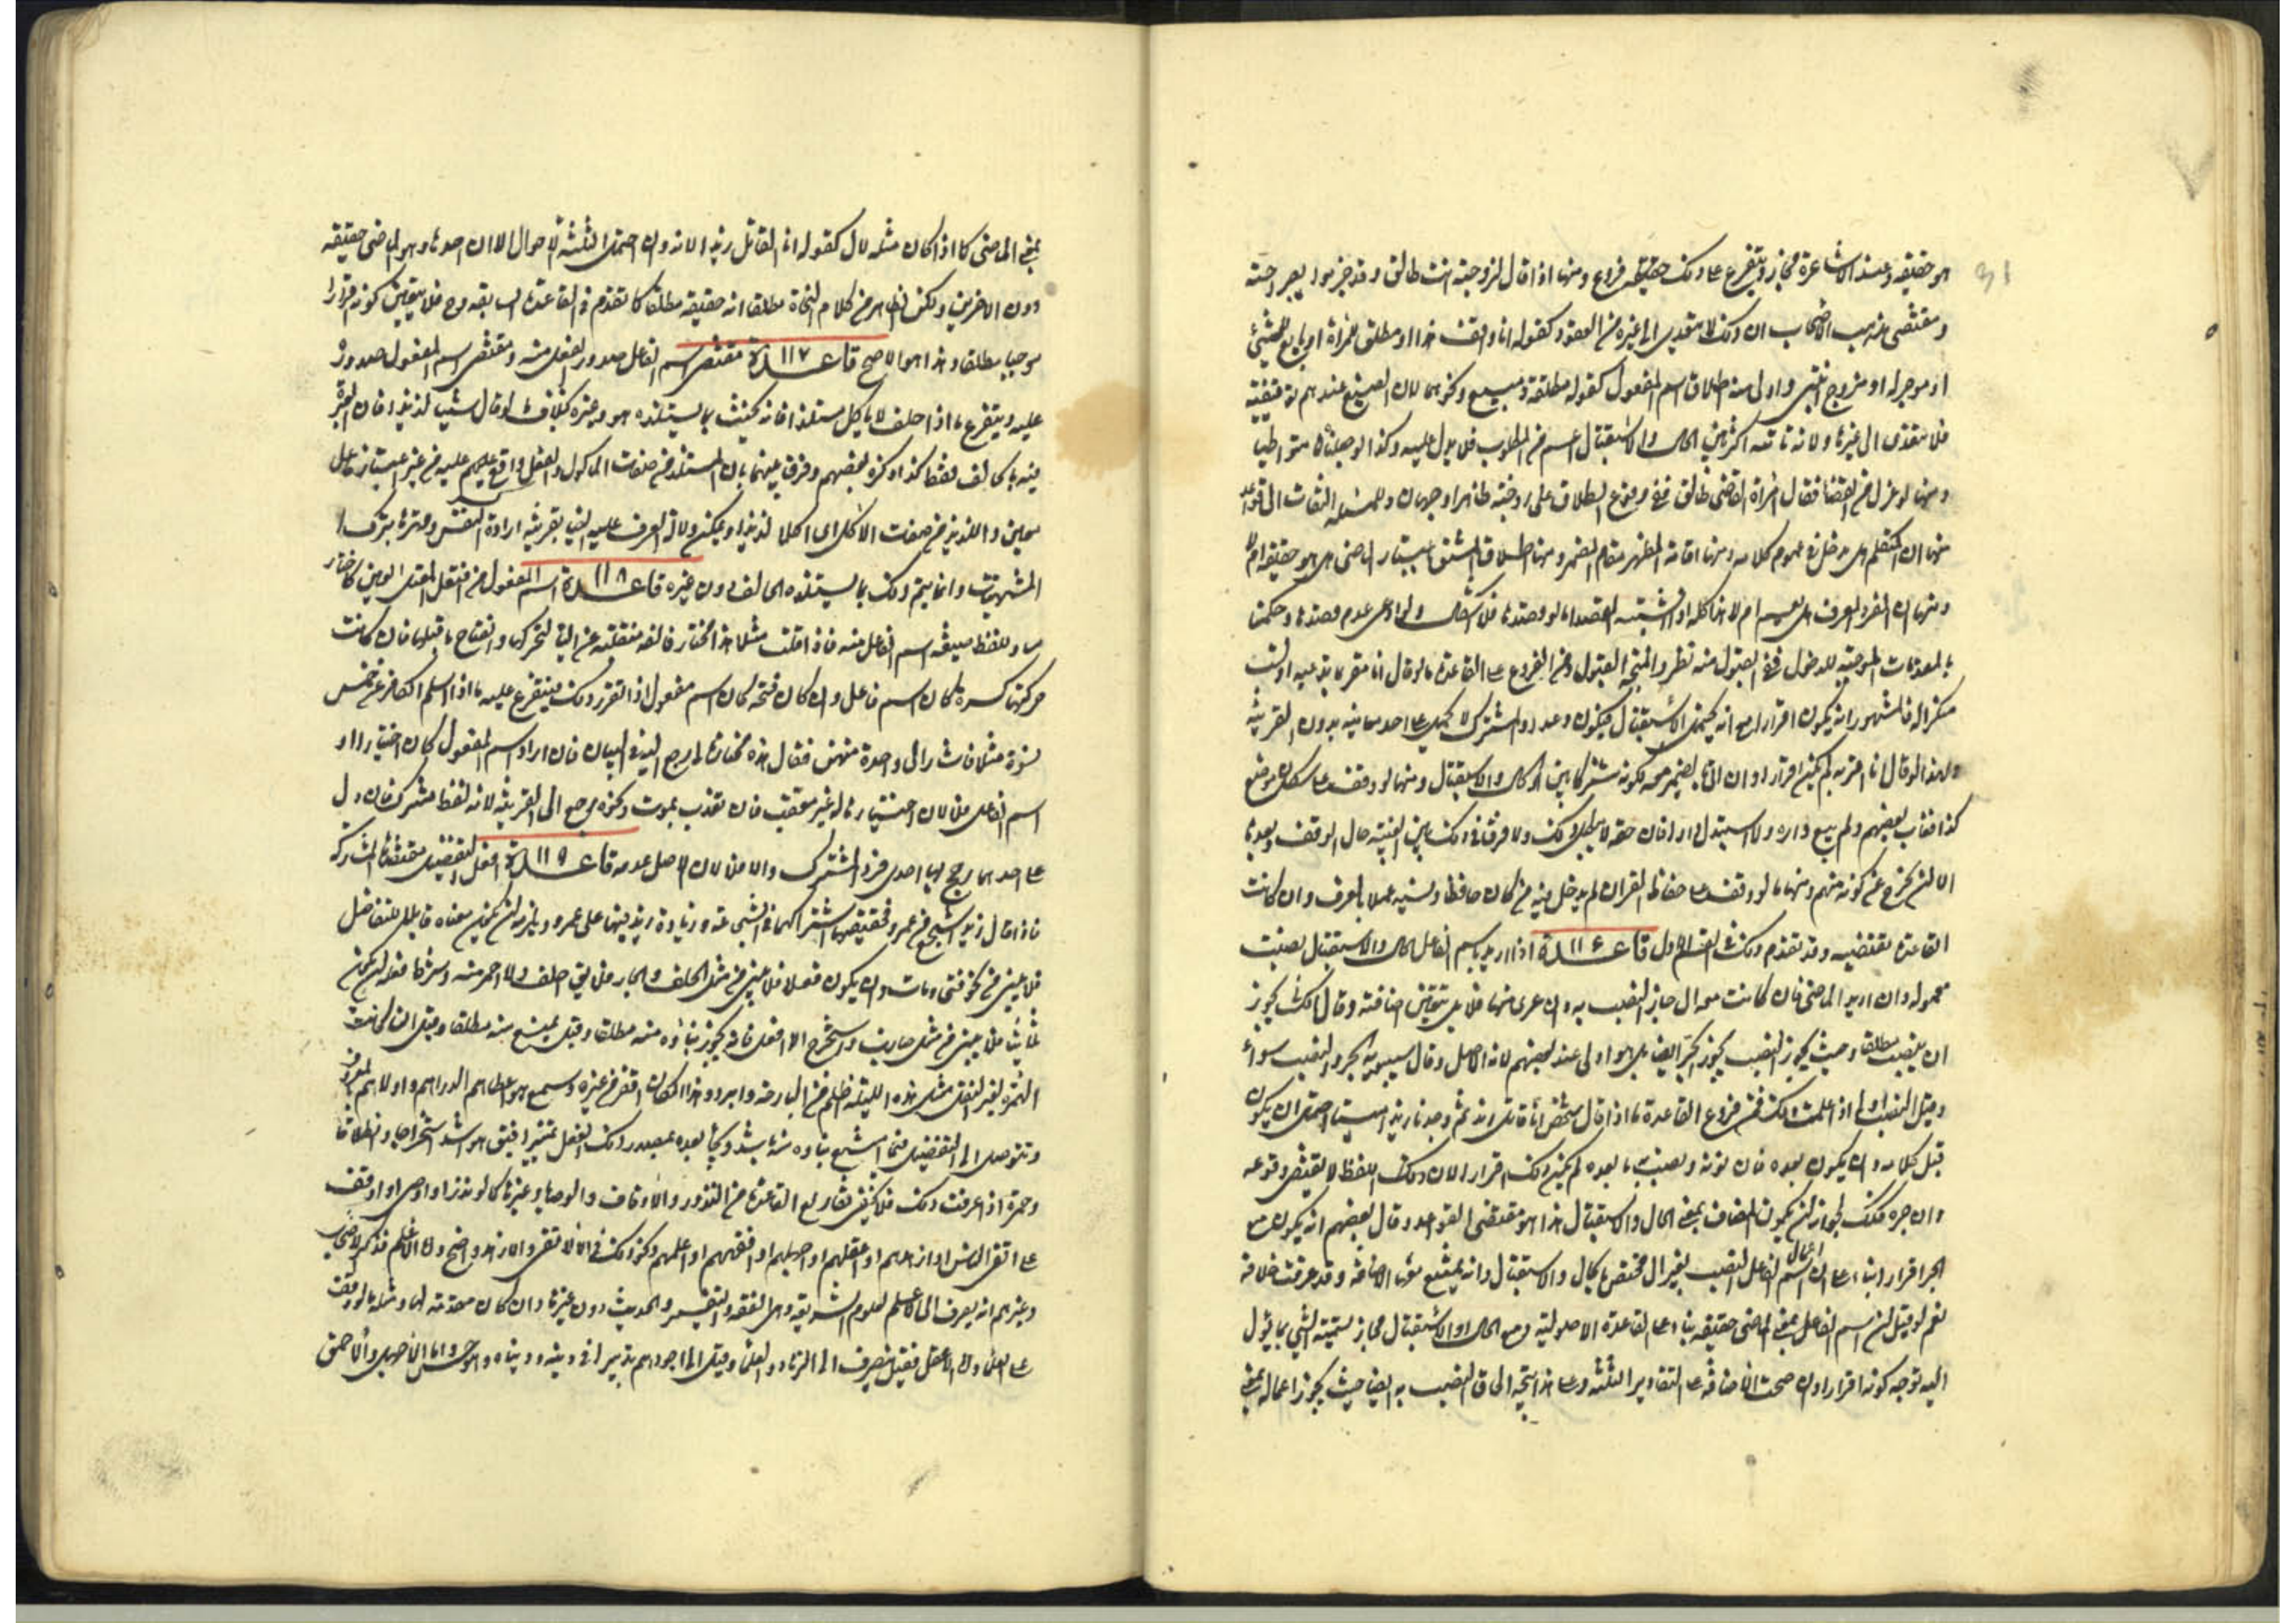 هو حقيقة وعند الاشاعرة مجاز ويتفرع على ذلك فروع ومنها اذا قال لزوجته انت طالق وقد
ومقتضى مذهب الاصحاب ان ذلك لا يتعدى الى غيره من العقود كقوله انا واقف هذا او مطلق المرأة او بايع للشيئ
او موجر له او مزوج بنتي واولى منه اطلاق اسم المفعول كقوله مطلقة ومبيع ونحوهما لان الصيغ عندهم توقيفية
فلا يتعدى الى غيرها ولانه باتصافه بين الحال والاستقبال اعم من المطلوب فلا يدل عليه وكذا الوصية
ومنها لو عزل عن القضا فقال امراة القاضي طالق ففي وقوع الطلاق على زوجته ظاهرا وجهان وللمسئلة التفات الى قواعد
منها ان المتكلم هل يدخل في عموم كلامه ومنها اقامة المظهر مقام المضمر ومنها اطلاق المشتق باعتبار الماضي هل هو حقيقة ام لا
ومنها ان المفرد المعرف هل يعم ام لا هذا كله اذا اشتبه القصد اما لو قصدها فلا اشكال ولو ادعى عدم قصدها وحكمنا
بالمعدمات الموجبة للدخول ففي القبول منه نظر والمتجه القبول ومن الفروع على القاعدة ما لو قال انا مقر بما يدعيه او لست
منكرا له فالمشهور انه يكون اقرارا مع انه يحتمل الاستقبال فيكون وعدا والمشترك لا يحمل على احد معانيه بدون القرينة
ولهذا لو قال انا اقر به لم يكن اقرارا وان اتى بالضمير معه لكونه مشتركا بين الحال والاستقبال ومنها لو وقف على سكان موضع
كذا فغاب بعضهم ولم يبع داره ولا استبدل دارا فان حقه لا يبطل بذلك ولا فرق في ذلك بين الغيبة حال الوقف وبعدها
الا لمن يخرج عن كونه منهم ومنها ما لو وقف على حفاظ القران لم يدخل فيه من كان حافظا ونسيه عملا بالعرف وان كانت
القاعدة تقتضيه وقد تقدم ذلك في القسم الاول قاعدة ١١٦ اذا اريد باسم الفاعل الحال والاستقبال نصبت
معموله وان اريد الماضي فان كانت معه ال جاز النصب به وان عرى منها فلا بل تتعين اضافته وقال الكسائي يجوز
ان ينصب مطلقا وحيث يجوز النصب يجوز الجر ايضا بل هو اولى عند بعضهم لانه الاصل وقال سيبويه الجر والنصب سواء
وقيل النصب اولى اذا علمت ذلك فمن فروع القاعدة ما اذا قال شخص انا قاتل زيد ثم وجدنا زيدا ميتا احتمل ان يكون
قبل كلامه وان يكون بعده فان نونه ونصب ما بعده لم يكن ذلك اقرارا لان ذلك اللفظ لا يقتضي وقوعه
وان جره فكذلك لجواز ان يكون المضاف بمعنى الحال والاستقبال هذا هو مقتضى القواعد وقال بعضهم انه يكون مع
الجر اقرارا بناء على ان اعمال اسم الفاعل النصب بغير ال مختص بالحال والاستقبال وانه يمتنع معها الاضافة وقد عرفت خلافه
نعم لو قيل ان اسم الفاعل بمعنى الماضي حقيقة بناء على القاعدة الاصولية ومع الحال او الاستقبال مجاز تسمية الشيئ بما يؤل
اليه توجه كونه اقرارا وان صحت الاضافة على التقادير الثلثة وعلى هذا يتجه الحاق النصب به ايضا حيث يجوز اعماله بمعنى
بمعنى الماضي كما اذا كان مثله بال كقوله انا القاتل زيدا لانه وان احتمل الثلثة الاحوال الا ان احدها وهو الماضي حقيقة
دون الاخرين ولكن الظاهر من كلام النحاة مطلقا انه حقيقة مطلقا كما تقدم في القاعدة السابقة وح فلا يتعين كونه اقرارا
موجبا مطلقا وهذا هو الاصح قاعدة ١١٧ مقتضى اسم الفاعل صدور الفعل منه ومقتضى اسم المفعول صدوره
عليه ويتفرع ما اذا حلف لا ياكل مستلذا فانه يحنث بما يستلذه هو وغيره بخلاف ما لو قال شيئا لذيذا فان العبرة
فيه بالحالف فقط كذا ذكره بعضهم وفرق بينهما بان المستلذ من صفات الماكول والفعل واقع عليه من غير اعتبار فاعل
معين واللذيذ من صفات الاكل اي اكلا لذيذا ويمكن دلالة العرف عليه ايضا بقرينة ارادة النفس وقهرها بترك
المشتهيات وانما يتم ذلك بما يستلذه الحالف دون غيره قاعدة ١١٨ اسم المفعول من افتعل المعتل العين كاختار
مساو للفظ صيغة اسم الفاعل منه فاذا قلت مثلا هذا مختار فالفه منقلبة عن الياء لتحركها وانفتاح ما قبلها فان كانت
حركتها كسرة كان اسم فاعل وان كان فتحة كان اسم مفعول اذا تقرر ذلك فيتفرع عليه ما اذا اسلم الكافر عن خمس
نسوة مثلا فاشار الى واحدة منهن فقال هذه مختارة ارجع اليه في البيان فان اراد اسم المفعول كان اختيارا او
اسم الفاعل فلا لان اختيارها له غير معتبر فان تعذر بموت ونحوه رجع الى القرينة لانه لفظ مشترك فان دل
على احدهما رجح لها احدى فردى المشترك والا فلا لان الاصل عدمه قاعدة ١١٩ افعل التفضيل مقتضاه المشاركة
فاذا قال زيد اشجع من عمرو فحقيقتها اشتراكهما في الشجاعة وزيادة زيد فيها على عمرو ويلزم ان يكون معناه قابلا للتفاضل
فلا يبنى من نحو فنى ومات وان يكون فعلا فلا يبنى من مثل الجلف والحمار فلا يق اجلف ولا احمر منه
ثلاثيا فلا يبنى من مثل ضارب واستخرج الا افعل فانه يجوز بناؤه منه مطلقا وقيل يمتنع منه مطلقا وقيل ان كانت
الهمزة لغير النقل مثل هذه الليلة اظلم من البارحة وابرد وهذا المكان اقفر من غيره وسمع هو اعطاهم للدراهم واولاهم بالمعروف
ويتوصل الى التفضيل فيما امتنع بناؤه منه باشد ويجاء بعده بمصدر ذلك الفعل تمييزا فيق هو اشد استخراجا وانطلاقا
وحمرة اذا عرفت ذلك فلا يخفى تفاريع القاعدة من النذور والاوقاف والوصايا وغيرها كما لو نذر او اوصى او اوقف
على اتقى الناس او ازهدهم او اعقلهم او اجهلهم او افقههم او اعلمهم ونحو ذلك فالاتقى والازهد واضح واما الاعلم فذكر الاصحاب
وغيرهم انه يصرف الى الاعلم بعلوم الشريعة وهي الفقه والتفسير والحديث دون غيرها وان كان مقدمة لها ومثله ما لو وقف
على العلماء واما الاعقل فقيل يصرف الى الزهاد والعلماء وقيل الى اجودهم تدبيرا في دينه ودنياه وهو حسن واما الاجهل والاحمق